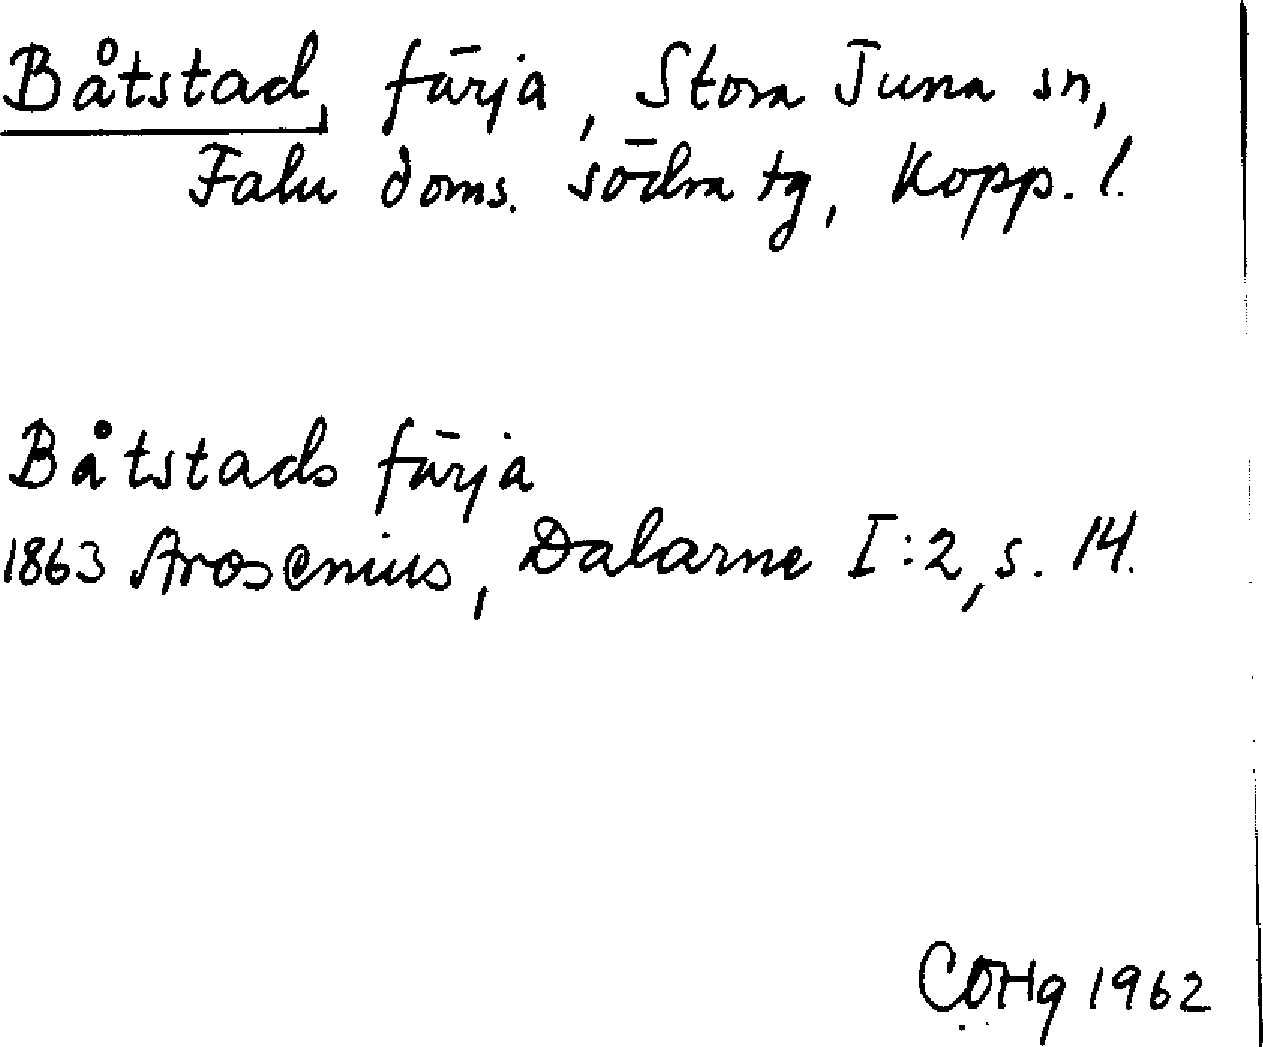 Båtstad, färja, Stora Tuna sn,
Falu doms. södra tg, Kopp. l.
Båtstads färja
1863 Arosenius, Dalarne I:2, s. 14.
COHg 1962